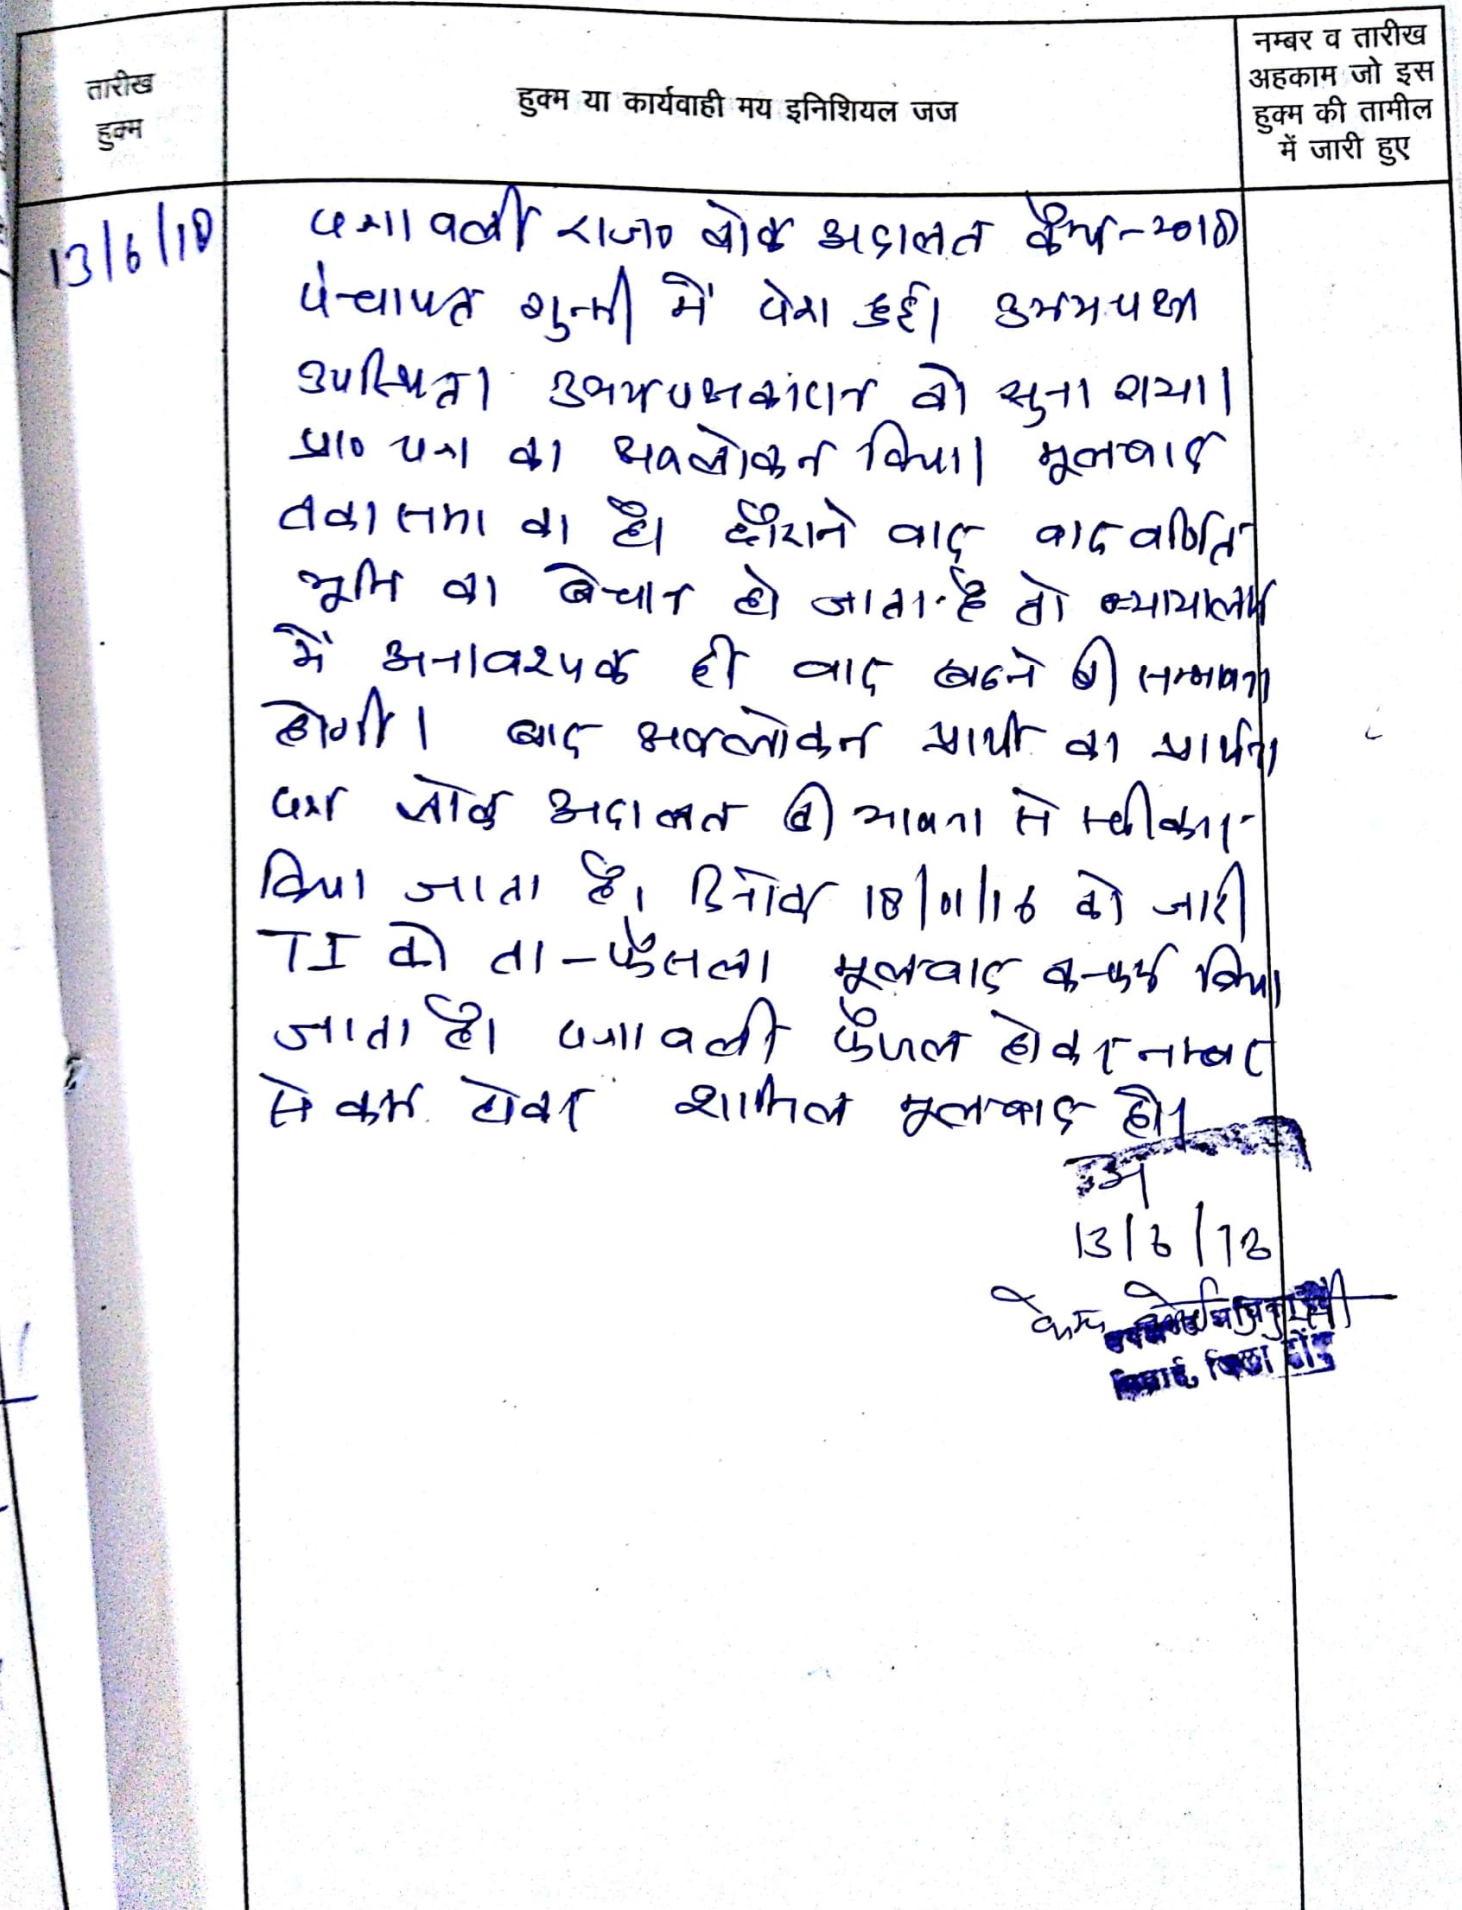 तारीख
हुक्म
हुक्म या कार्यवाही मय इनिशियल जज
नम्बर व तारीख
अहकाम जो इस
हुक्म की तामील
में जारी हुए
13/6/18
पत्रावली राज० लोक अदालत कैम्प-2018
पंचायत में पेश हुई। उभयपक्ष
उपस्थित। उभयपक्षकारान को सुना गया।
प्रा० पत्र का अवलोकन किया। मूलवाद
तकासमा का है। दौराने वाद वाद वर्णित
भूमि का बेचान हो जाता है तो न्यायालय
में अनावश्यक ही वाद बढने की सम्भावना
होगी। बाद अवलोकन प्रार्थी का प्रार्थना
पत्र लोक अदालत की भावना से स्वीकार
किया जाता है। दिनांक 18/01/16 को जारी
TI को ता-फैसला मूलवाद कन्फर्म किया
जाता है। पत्रावली फैसल होकर नम्बर
से कम होकर शामिल मूलवाद हो।
13/6/18
कैम्प